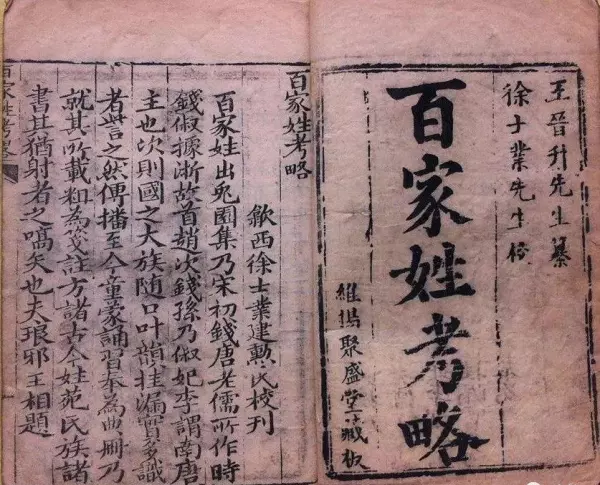 王晉升先生纂
徐士業先生校
百家姓考略
維揚聚盛堂藏板
百家姓考略
歙西徐士業建勳氏校刊
百家姓出兎園集乃宋初錢唐老儒所作時
錢俶據浙故首趙次錢孫乃俶妃李謂南唐
主也次則國之大族隨口叶韻挂漏實多識
者訾之然傳播至今童蒙誦習奉為典冊乃
就其所載粗為箋註方諸古今姓苑氏族諸
書其猶射者之嚆矢也夫琅邪王相題
百家姓考畧